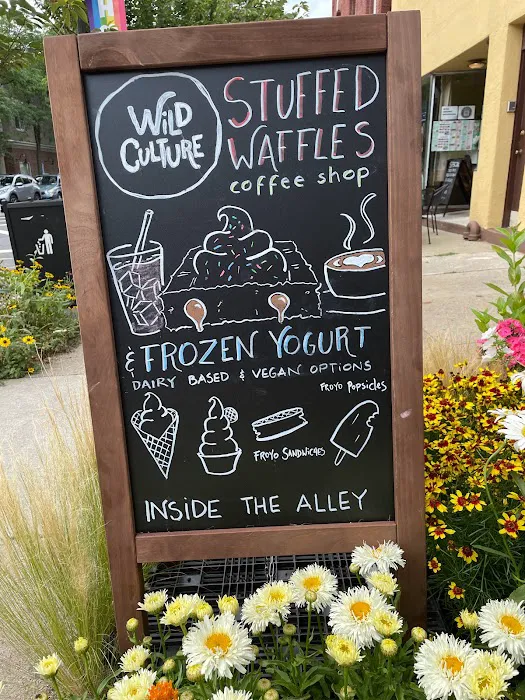 WiLD
CULTURE
STUFFED
WAFFLES
coffee shop
& FROZEN YOGURT
DAIRY BASED & VEGAN OPTIONS
FROYO POPSICLES
FROYO SANDWICHES
INSIDE THE ALLEY